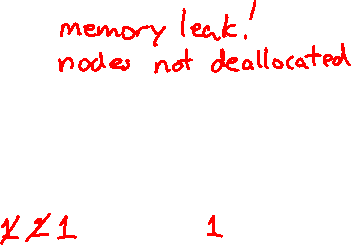 memory leak!
nodes not deallocated
1 2 1 1